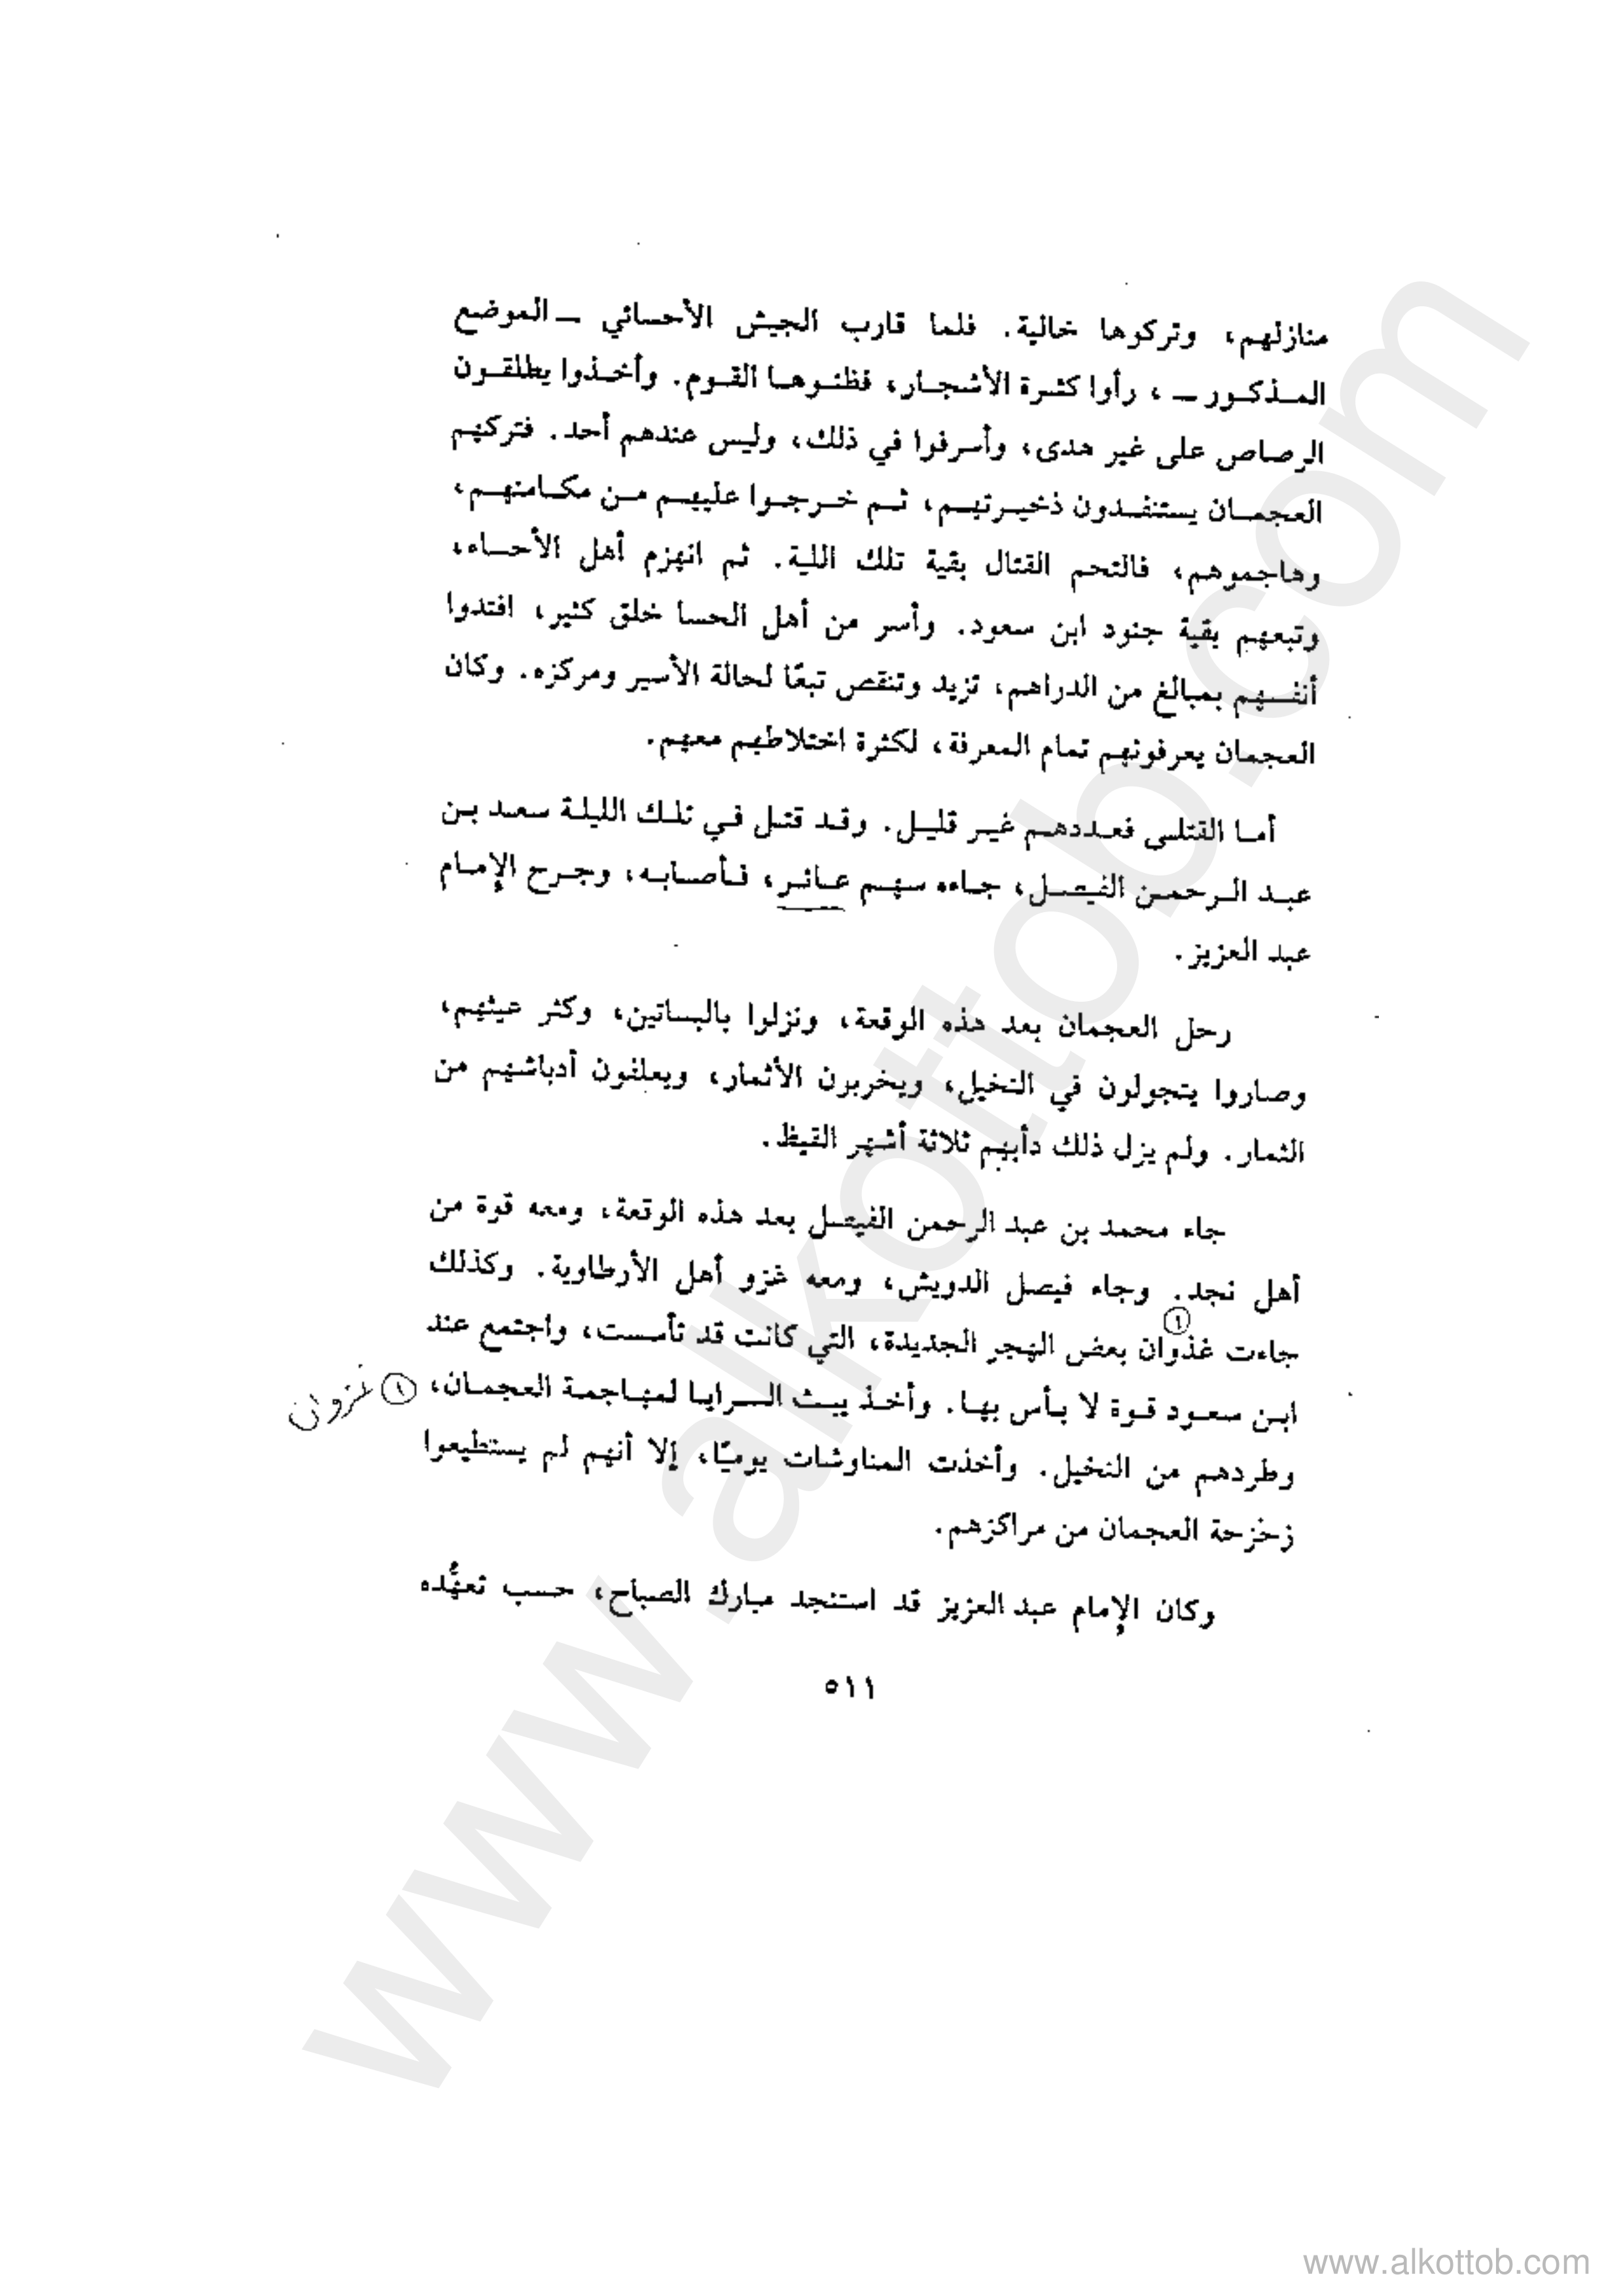 منازلهم، وتركوها خالية. فلما قارب الجيش الأحسائي ــ الموضع
المـذكـور ــ ، رأوا كثـرة الأشجـار، فظنـوهـا القـوم. وأخـذوا يطلقـون
الرصاص على غير هدى، وأسرفوا في ذلك، وليس عندهم أحد. فتركهم
العجمـان يستنفـدون ذخيـرتهـم، ثـم خـرجـوا عليهـم مـن مكـامنهـم،
وهاجموهم، فالتحم القتال بقية تلك اللية. ثم انهزم أهل الأحساء،
وتبعهم بقية جنود ابن سعود. وأسر من أهل الحسا خلق كثير، افتدوا
أنفسهم بمبالغ من الدراهم، تزيد وتنقص تبعًا لحالة الأسير ومركزه. وكان
العجمان يعرفونهم تمام المعرفة، لكثرة اختلاطهم معهم.
أمـا القتلـى فعـددهـم غيـر قليـل. وقـد قتـل فـي تلـك الليلـة سعـد بـن
عبـد الـرحمـن الفيصـل، جـاءه سهـم عـائـر، فـأصـابـه، وجـرح الإمـام
عبد العزيز.
رحل العجمان بعد هذه الوقعة، ونزلوا بالبساتين، وكثر عيثهم،
وصاروا يتجولون في النخيل، ويخربون الأثمار، ويعلفون أدباشهم من
الثمار. ولم يزل ذلك دأبهم ثلاثة أشهر القيظ.
جاء محمد بن عبد الرحمن الفيصل بعد هذه الوقعة، ومعه قوة من
أهل نجد. وجاء فيصل الدويش، ومعه غزو أهل الأرطاوية. وكذلك
جاءت غذوان ١ بعض الهجر الجديدة، التي كانت قد تأسست، واجتمع عند
ابـن سعـود قـوة لا بـأس بهـا. وأخـذ يبـث السـرايـا لمهـاجمـة العجمـان،
١ غزوان
وطردهم من النخيل. وأخذت المناوشات يوميًا، إلا أنهم لم يستطيعوا
زحزحة العجمان من مراكزهم.
وكان الإمام عبد العزيز قد استنجد مبارك الصباح، حسب تعهُّده
٥١١
www.alkottob.com
www.alkottob.com